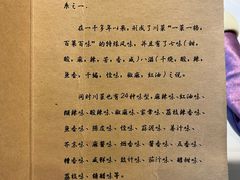 系之一.
在一千多年以来，形成了川菜"一菜一格，
百菜百味"的特殊风味，并且有了七味(甜，
酸，麻，辣，苦，香，咸)八滋(干烧，酸，辣，
鱼香，干煸，怪味，椒麻，红油)之说。
同时川菜也有24种味型，麻辣味、红油味、
糊辣味、酸辣味、椒麻味、家常味、荔枝辣香味、
鱼香味、陈皮味、怪味、蒜泥味、姜汁味、
芥末味、麻酱味、烟香味、酱香味、五香味、
糟香味、咸鲜味、豉汁味、茄汁味、醋甜味、
荔枝味、糖醋味等。